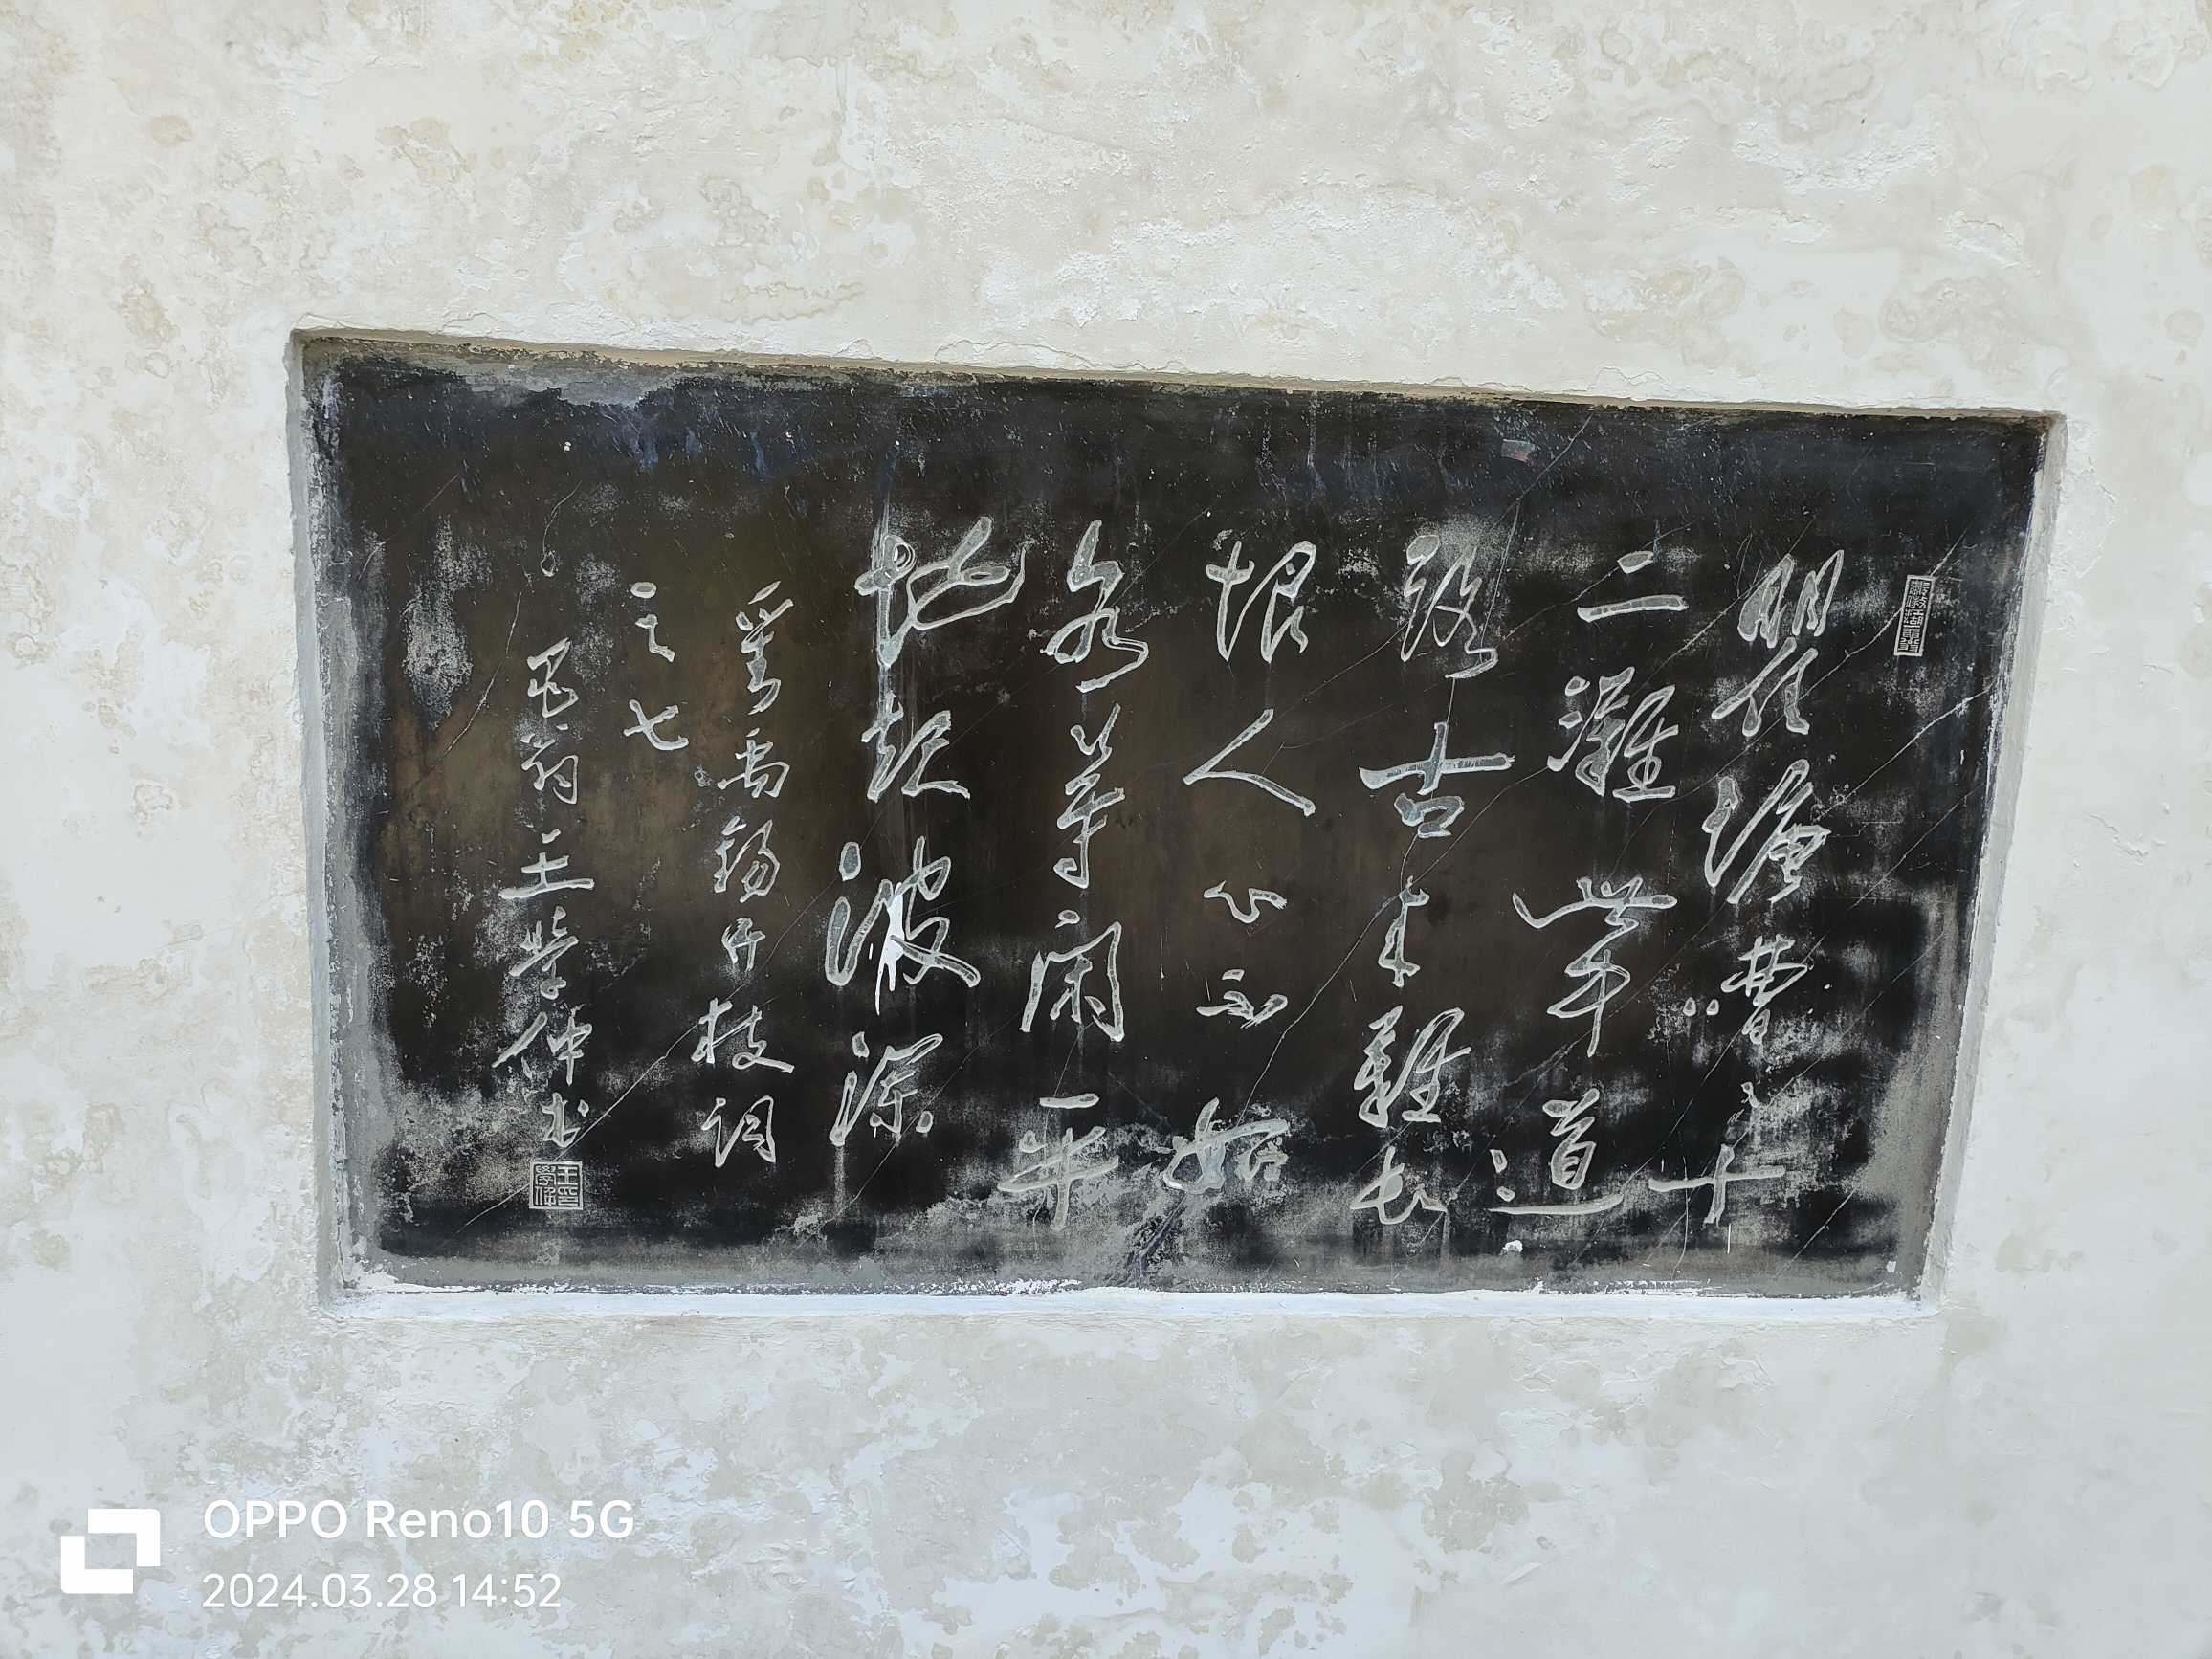 瞿塘嘈〻十
二灘此中道
路古来難長
恨人心不如
水等闲平
地起波瀾
刘禹錫竹枝词
之七
黾翁王学仲书
OPPO Reno10 5G
2024.03.28 14:52